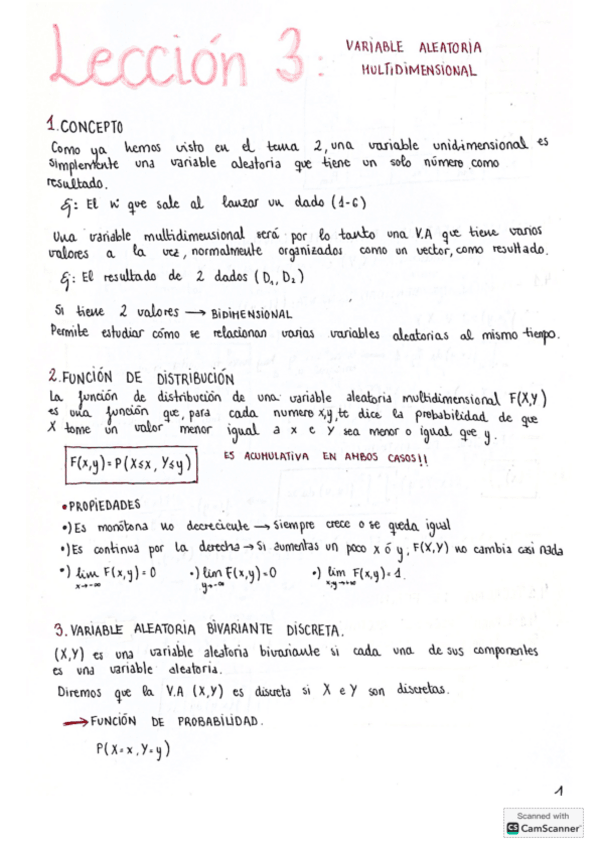 Lección 3:
VARIABLE ALEATORIA
MULTIDIMENSIONAL
1. CONCEPTO
Como ya hemos visto en el tema 2, una variable unidimensional es
simplemente una variable aleatoria que tiene un solo número como
resultado.
Ej: El nº que sale al lanzar un dado (1-6)
Una variable multidimensional será por lo tanto una V.A que tiene varios
valores a la vez, normalmente organizados como un vector, como resultado.
Ej: El resultado de 2 dados (D₁, D₂)
Si tiene 2 valores → BIDIMENSIONAL
Permite estudiar cómo se relacionan varias variables aleatorias al mismo tiempo.
2. FUNCIÓN DE DISTRIBUCIÓN
La función de distribución de una variable aleatoria multidimensional F(X,Y)
es una función que, para cada numero x,y, te dice la probabilidad de que
X tome un valor menor igual a x e Y sea menor o igual que y.
F(x,y) = P(X≤x, Y≤y)
ES ACUMULATIVA EN AMBOS CASOS!!
• PROPIEDADES
•) Es monótona no decreciente → Siempre crece o se queda igual
•) Es continua por la derecha → Si aumentas un poco x ó y, F(X,Y) no cambia casi nada
•) lim F(x,y) = 0 •) lim F(x,y) = 0 •) lim F(x,y) = 1
x→-∞ y→-∞ x,y→+∞
3. VARIABLE ALEATORIA BIVARIANTE DISCRETA.
(X,Y) es una variable aleatoria bivariante si cada una de sus componentes
es una variable aleatoria.
Diremos que la V.A (X,Y) es discreta si X e Y son discretas.
→ FUNCIÓN DE PROBABILIDAD.
P(X=x, Y=y)
1
Scanned with
CS CamScanner